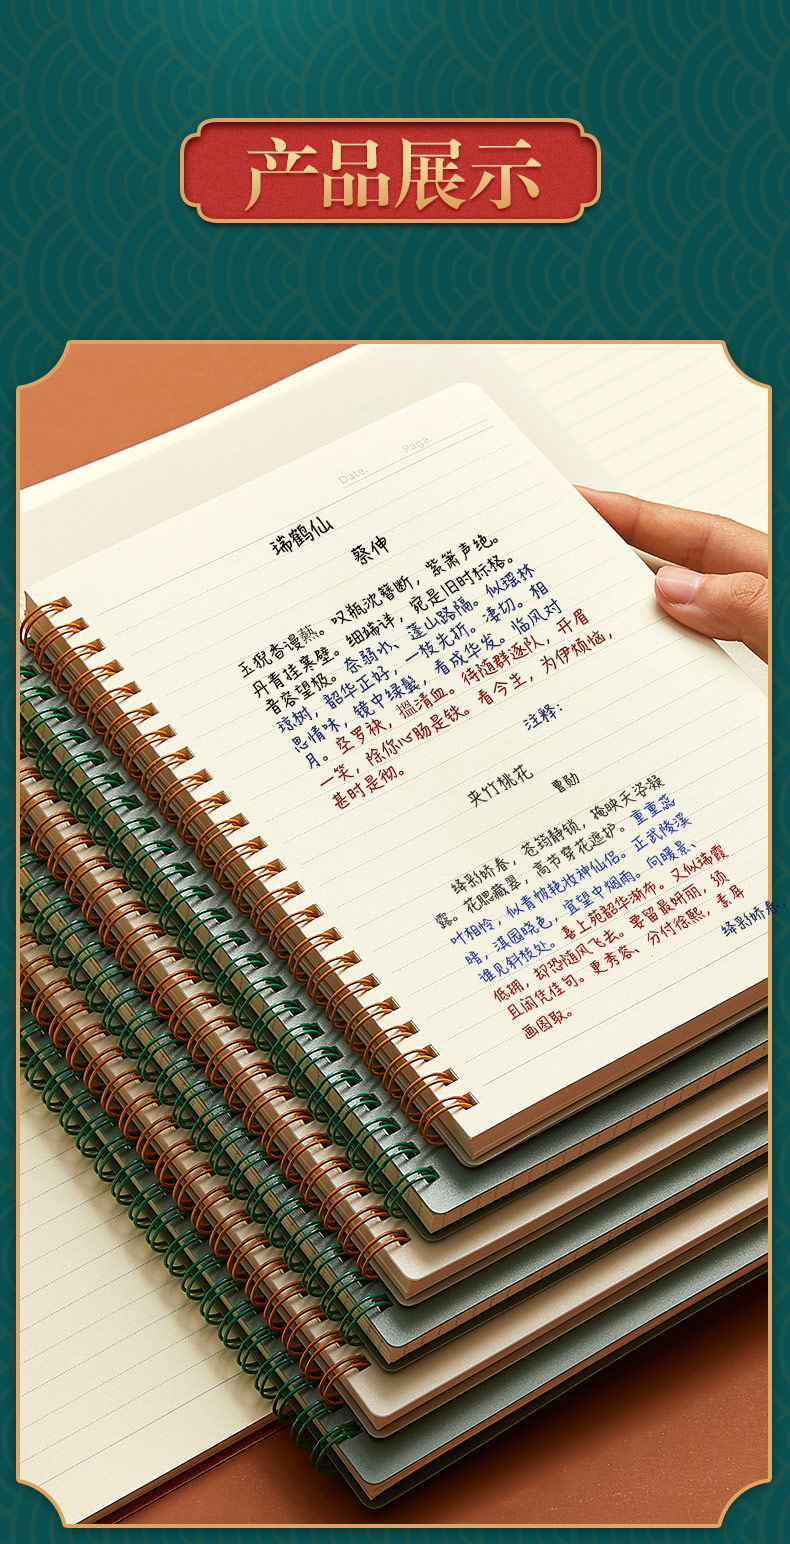 产品展示
Date. Page.
瑞鹤仙
蔡伸
玉猊香谩爇。叹瓶沈簪断，紫箫声绝。
丹青挂寒壁。细端详，宛是旧时标格。
音容望极。奈弱水、蓬山路隔。似瑶林
琼树，韶华正好，一枝先折。凄切。相
思情味，镜中绿鬓，看成华发。临风对
月。空罗袂，搵清血。待随群逐队，开眉
一笑，除你心肠是铁。看今生，为伊烦恼，
甚时是彻。
注释：
夹竹桃花
曹勋
绛彩娇春，苍筠静锁，掩映夭姿凝
露。花腮藏翠，高节穿花遮护。重重蕊
叶相怜，似青帔艳妆神仙侣。正武陵溪
暗，淇园晓色，宜望中烟雨。向暖景、
谁见斜枝处。喜上苑韶华渐布。又似瑞霞
低拥，却恐随风飞去。要留最妍丽，须
且闲凭佳句。更秀容、分付徐熙，素屏
画图取。
绛彩娇春，